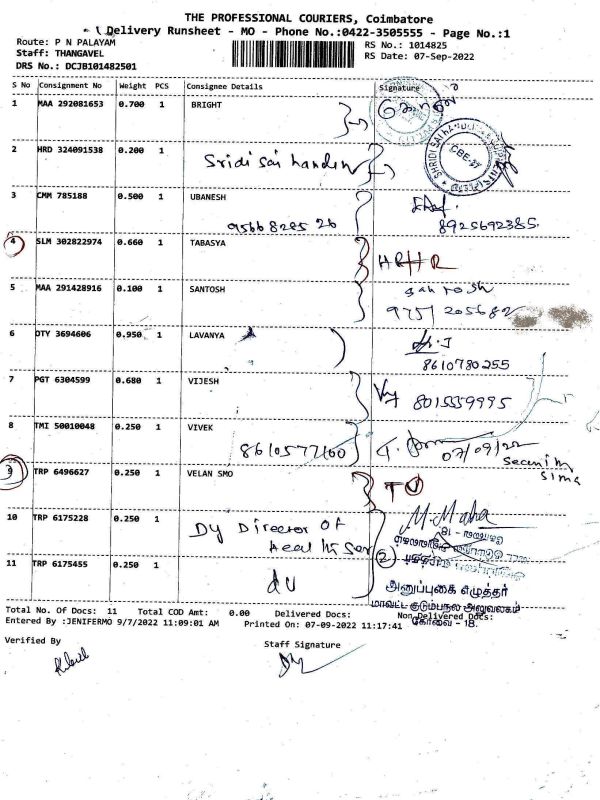 THE PROFESSIONAL COURIERS, Coimbatore
Delivery Runsheet - MO - Phone No.:0422-3505555 - Page No.:1
Route: P N PALAYAM
Staff: THANGAVEL
DRS No.: DCJB101482501
RS No.: 1014825
RS Date: 07-Sep-2022
S No Consignment No Weight PCS Consignee Details Signature
1 MAA 292081653 0.700 1 BRIGHT
2 HRD 324091538 0.200 1 Sridi sai
3 CMM 785188 0.500 1 UBANESH
8925692385.
4 SLM 302822974 0.660 1 TABASYA
5 MAA 291428916 0.100 1 SANTOSH Santosh
9751205682
6 DTY 3694606 0.950 1 LAVANYA
8610780255
7 PGT 6304599 0.680 1 VIJESH 8015559995
8 TMI 50010048 0.250 1 VIVEK
8610577160 07/09/22
9 TRP 6496627 0.250 1 VELAN SMO
10 TRP 6175228 0.250 1 M. Maha
Dy Director Of
11 TRP 6175455 0.250 1
அனுப்புகை எழுத்தர்
மாவட்ட குடும்பநல அலுவலகம்
கோவை - 18.
Total No. Of Docs: 11 Total COD Amt: 0.00 Delivered Docs: Non Delivered Docs:
Entered By :JENIFERMO 9/7/2022 11:09:01 AM Printed On: 07-09-2022 11:17:41
Verified By
Staff Signature